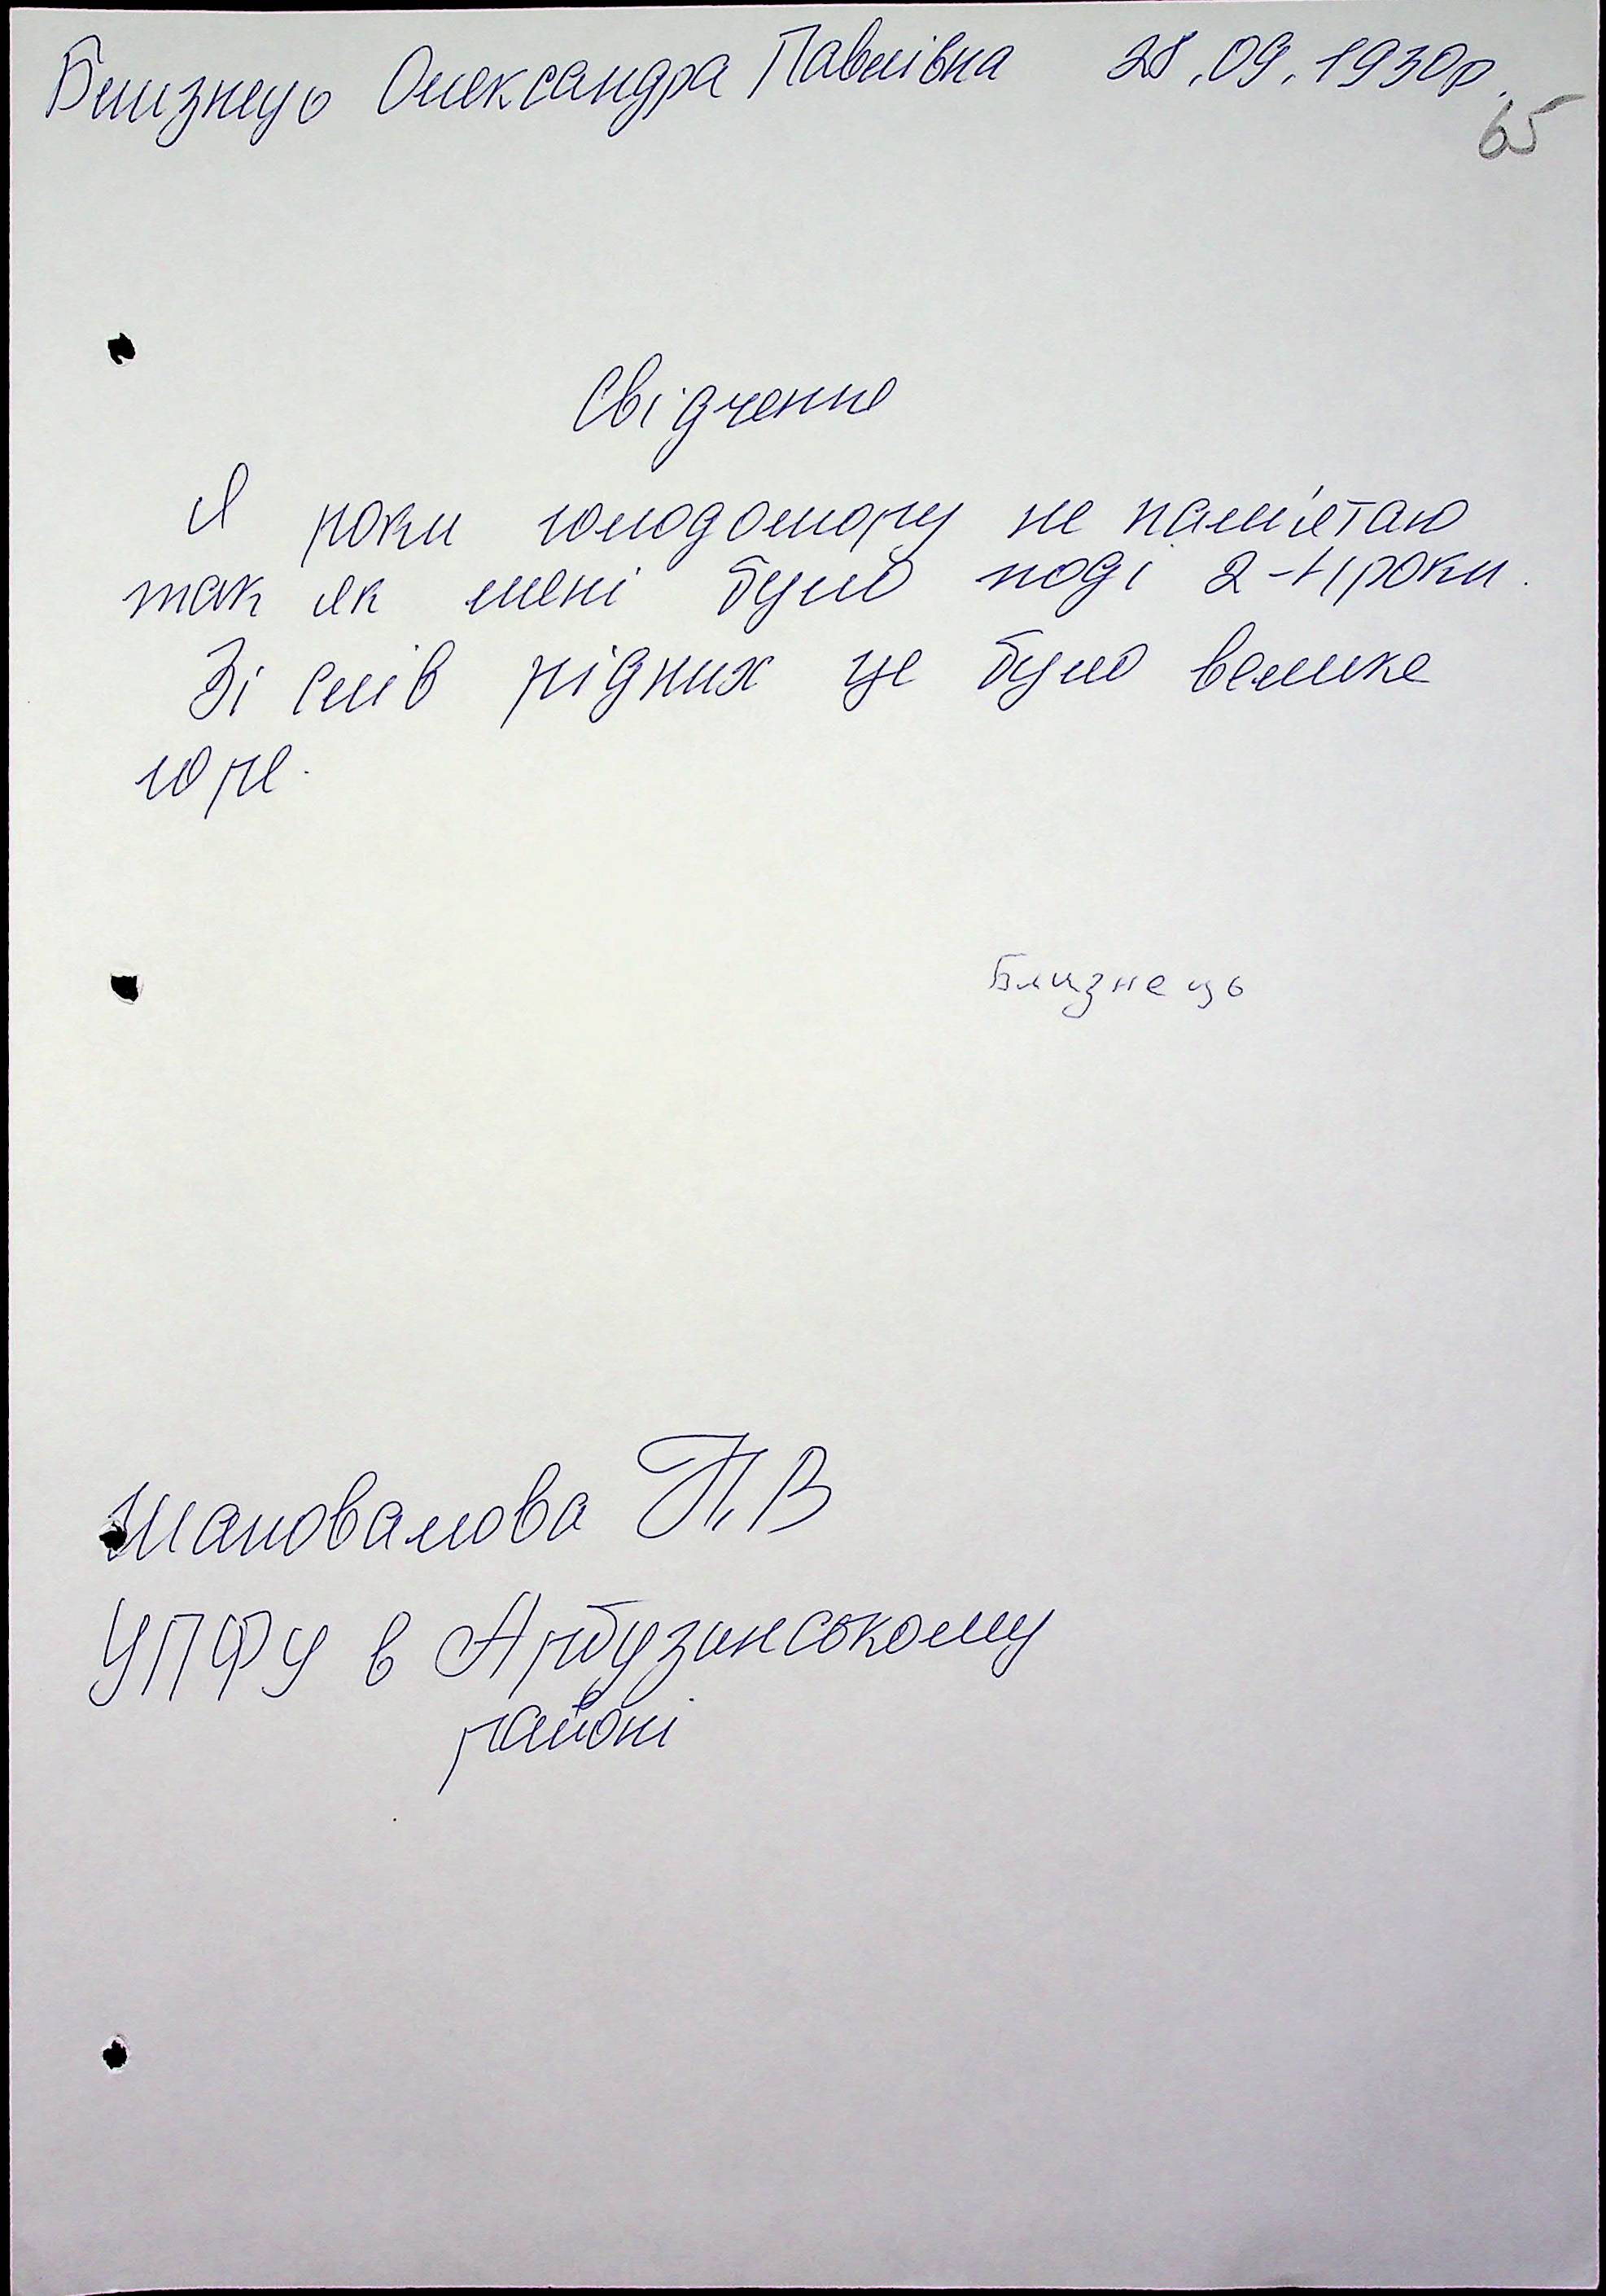 Близнець Олександра Павлівна 28.09.1930р.
65
Свідчення
Я роки голодомору не пам'ятаю
так як мені було тоді 2-і роки.
Зі слів рідних це було велике
горе.
Близнець
Шаповалова Т.В
УПФУ в Арбузинському
районі